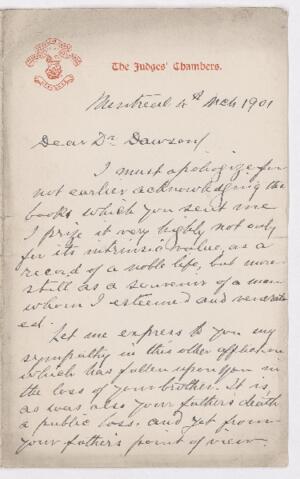 The Judges' Chambers.
Montreal 4th Mch 1901
Dear Dr. Dawson,
I must apologize for
not earlier acknowledging the
books which you sent me
I prize it very highly not only
for its intrinsic value, as a
record of a noble life, but more
still as a souvenir of a man
whom I esteemed and venerat
ed.
Let me express to you my
sympathy in this other affliction
which has fallen upon you in
the loss of your brother. It is,
as was also your father's death
a public loss. and yet from
your father's point of view